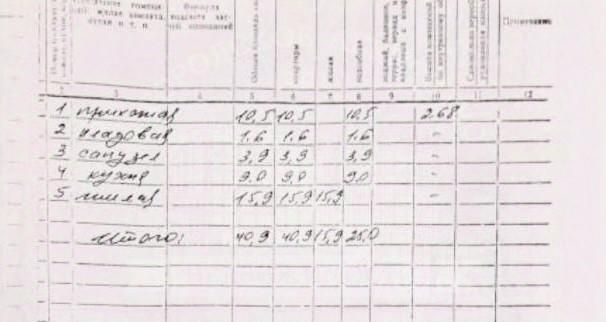 Формула подсчета
жилая комната,
кухня и т. п.
площадей
Общая площадь
квартиры
жилая
подсобная
Высота помещений
по внутреннему
Самовольно
Примечание
2 3 4 5 6 7 8 9 10 11 12
1 прихожая 10,5 10,5 10,5 2.68
2 кладовая 1.6 1.6 1.6 -
3 санузел 3,9 3,9 3,9 -
4 кухня 9.0 9.0 9.0 -
5 жилая 15,9 15,9 15,9 -
Итого: 40,9 40,9 15,9 25,0